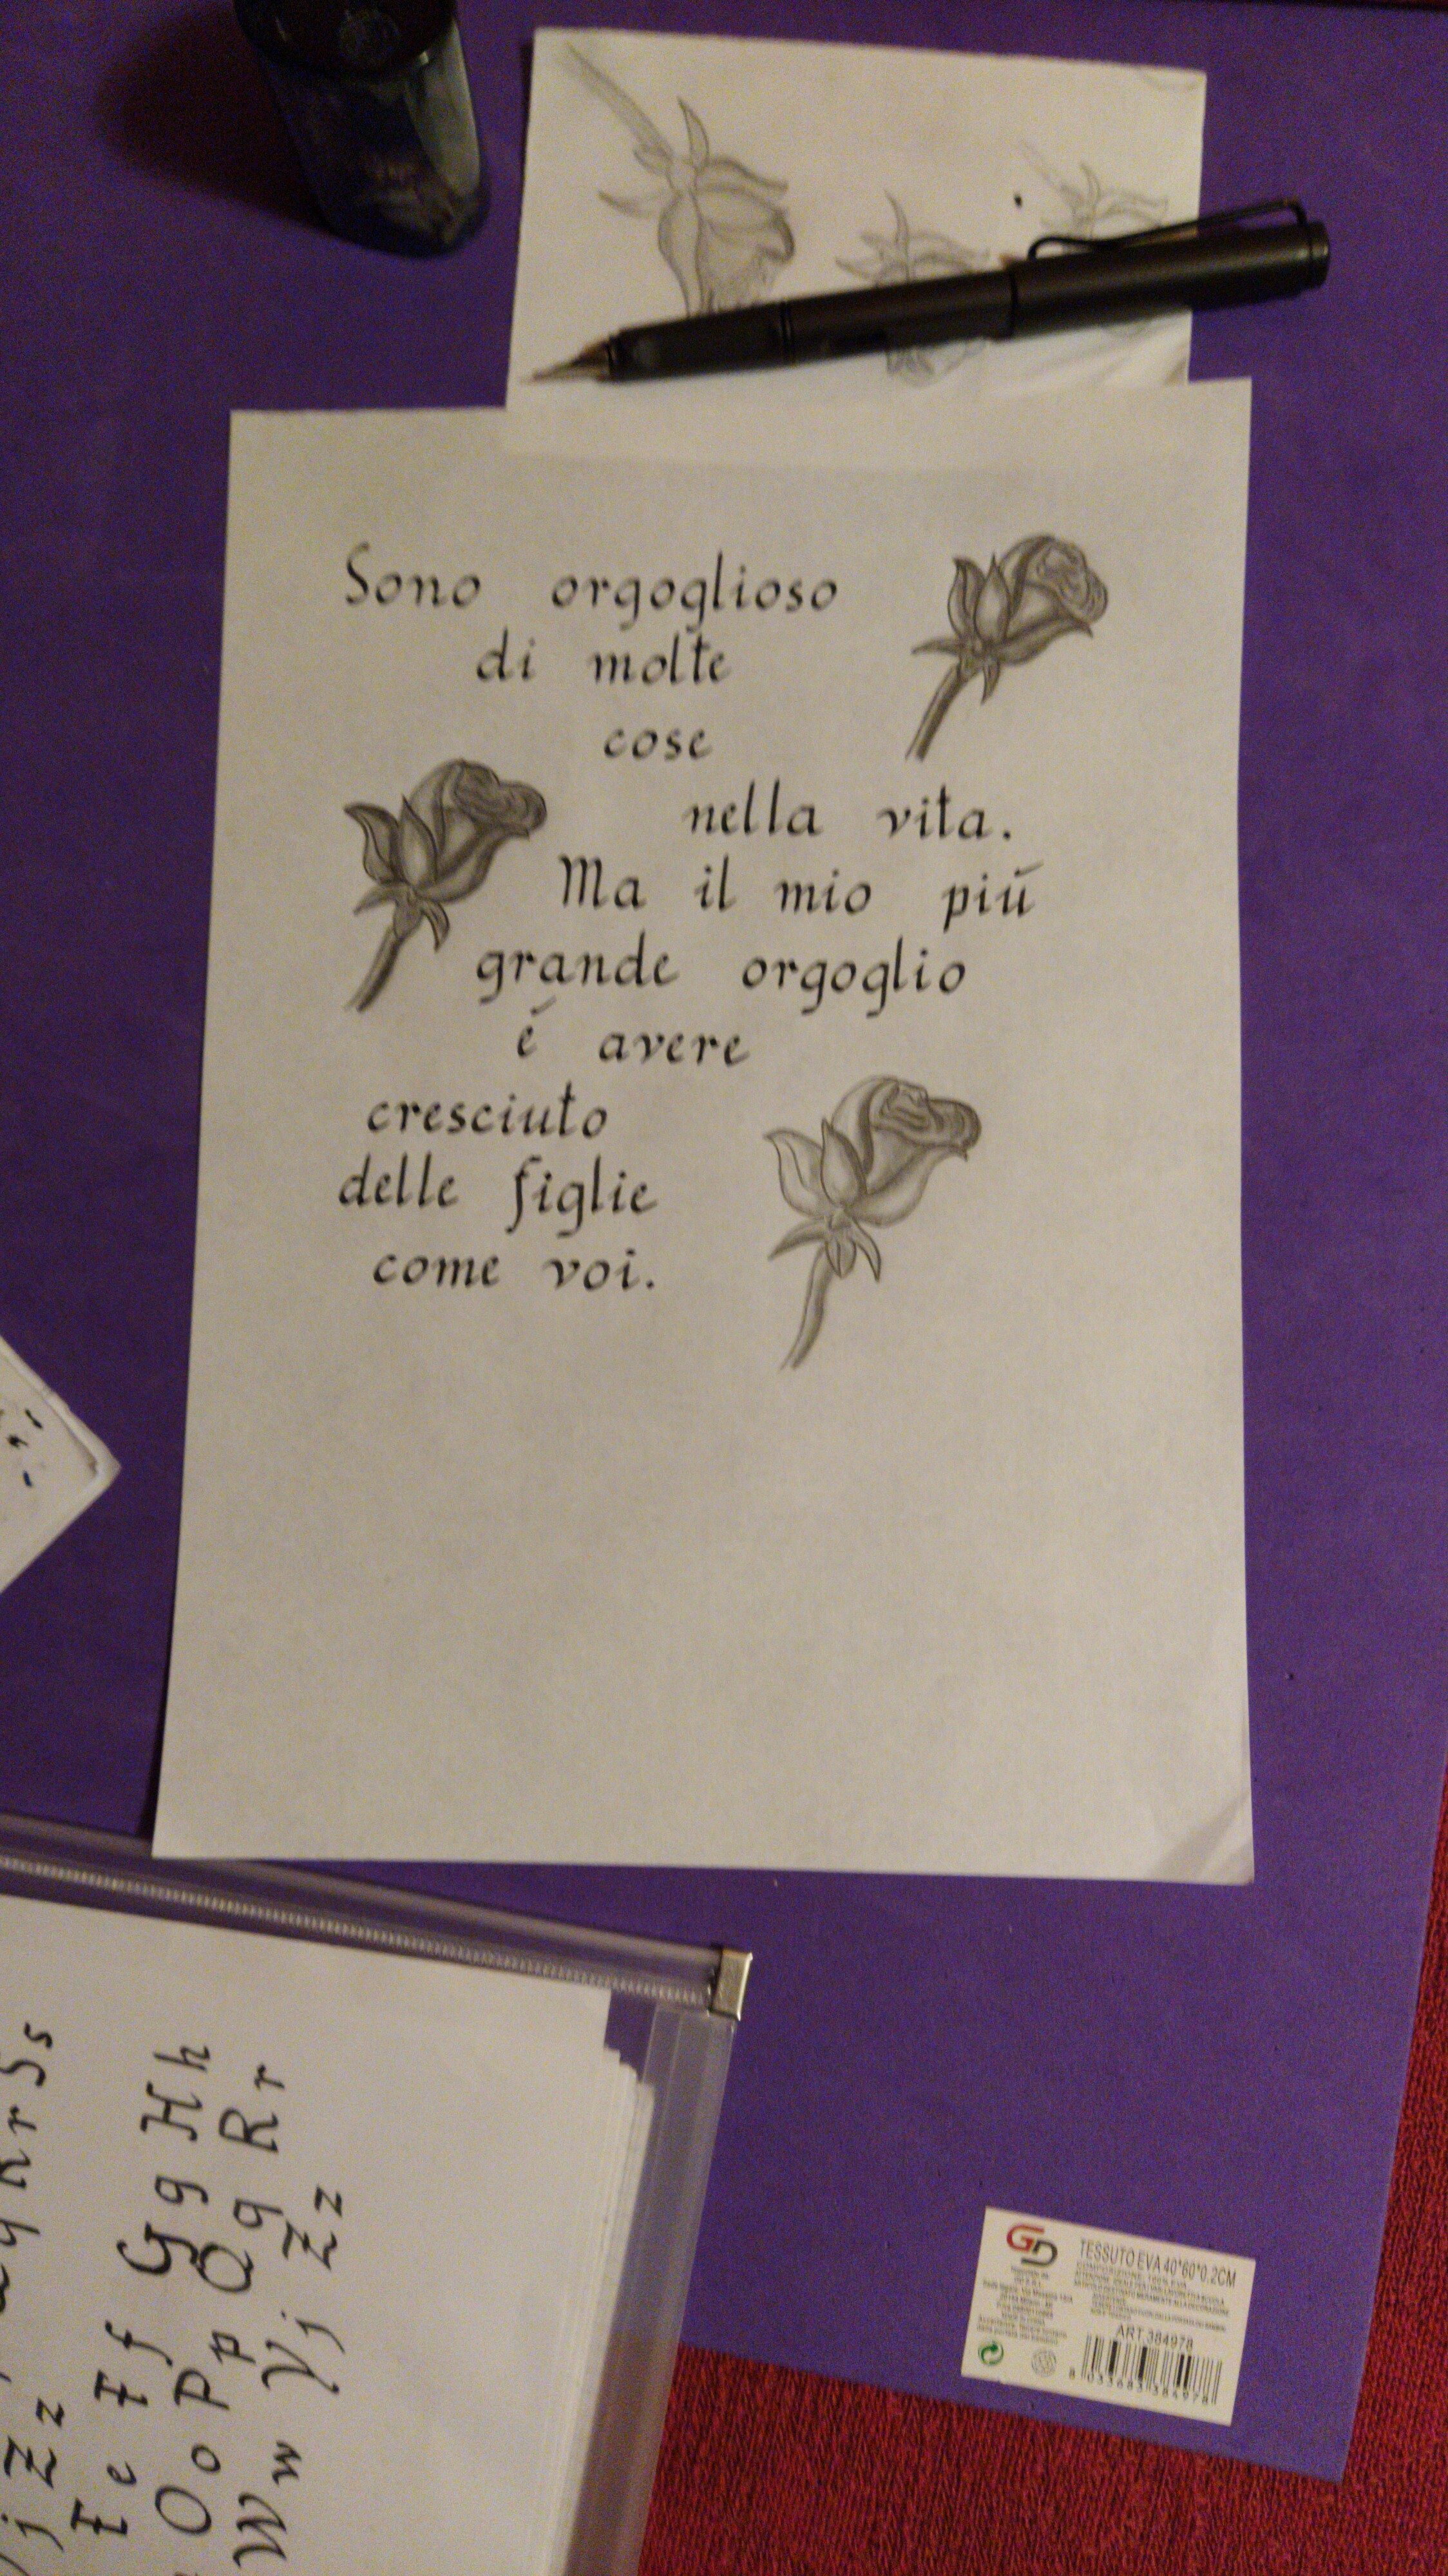 Sono orgoglioso
di molte
cose
nella vita.
Ma il mio piú
grande orgoglio
é avere
cresciuto
delle figlie
come voi.
S s
H h
R r
G g
Q q
Z z
F f
P p
O o
W w
GD
TESSUTO EVA 40*60*0.2CM
ART 384978
8 033683 384978